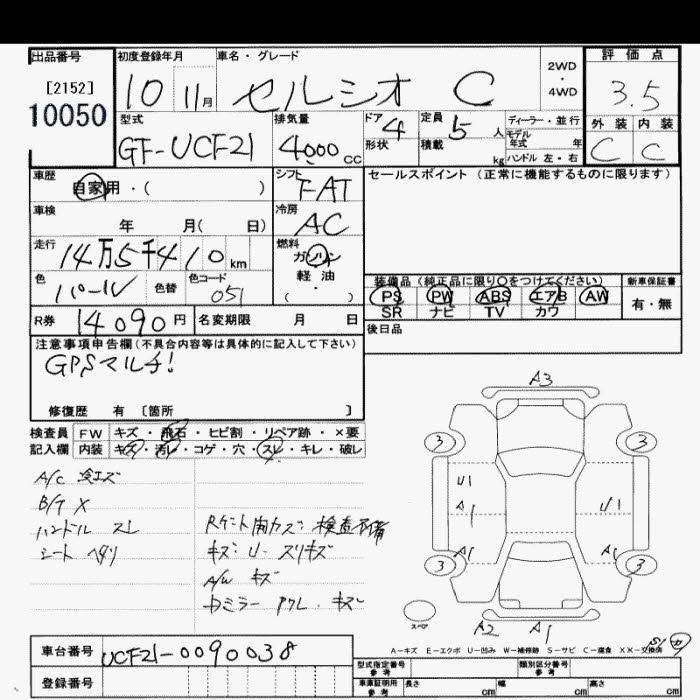 出品番号
[2152]
10050
初度登録年月
10 11月
車名・グレード
セルシオ C
2WD
・
4WD
評価点
3.5
外装 内装
C C
型式
GF-UCF21
排気量
4000cc
ドア 4
形状
定員 5人
積載 kg
ディーラー・並行
モデル
年式 年
ハンドル 左・右
車歴
自家用・( )
シフト
FAT
セールスポイント (正常に機能するものに限ります)
車検
年 月( 日)
冷房
AC
走行
14万5千410km
燃料
ガソリン
軽油
・
( )
色
パール
色替
色コード
051
装備品 (純正品に限り○をつけてください)
PS PW ABS エアB AW
SR ナビ TV カワ
新車保証書
有・無
R券 14090円
名変期限 月 日
後日品
注意事項申告欄(不具合内容等は具体的に記入して下さい)
GPSマルチ!
修復歴 有 〔箇所 〕
検査員 FW キズ・飛石・ヒビ割・リペア跡・×要
記入欄 内装 キズ・汚レ・コゲ・穴・スレ・キレ・破レ
A/C 冷エズ
B/T X
ハンドル スレ
シート ヘタリ
キズ: U・スリキズ
A/W キズ
A3
3 3
U1
A1 U1
A1 A1
3 3
スペア
A2 A1
A−キズ E−エクボ U−凹み W−補修跡 S−サビ C−腐食 XX−交換済
車台番号 UCF21-0090038
登録番号
型式指定番号
参考
類別区分番号
参考
車庫証明用
参考
長さ cm 幅 cm 高さ cm